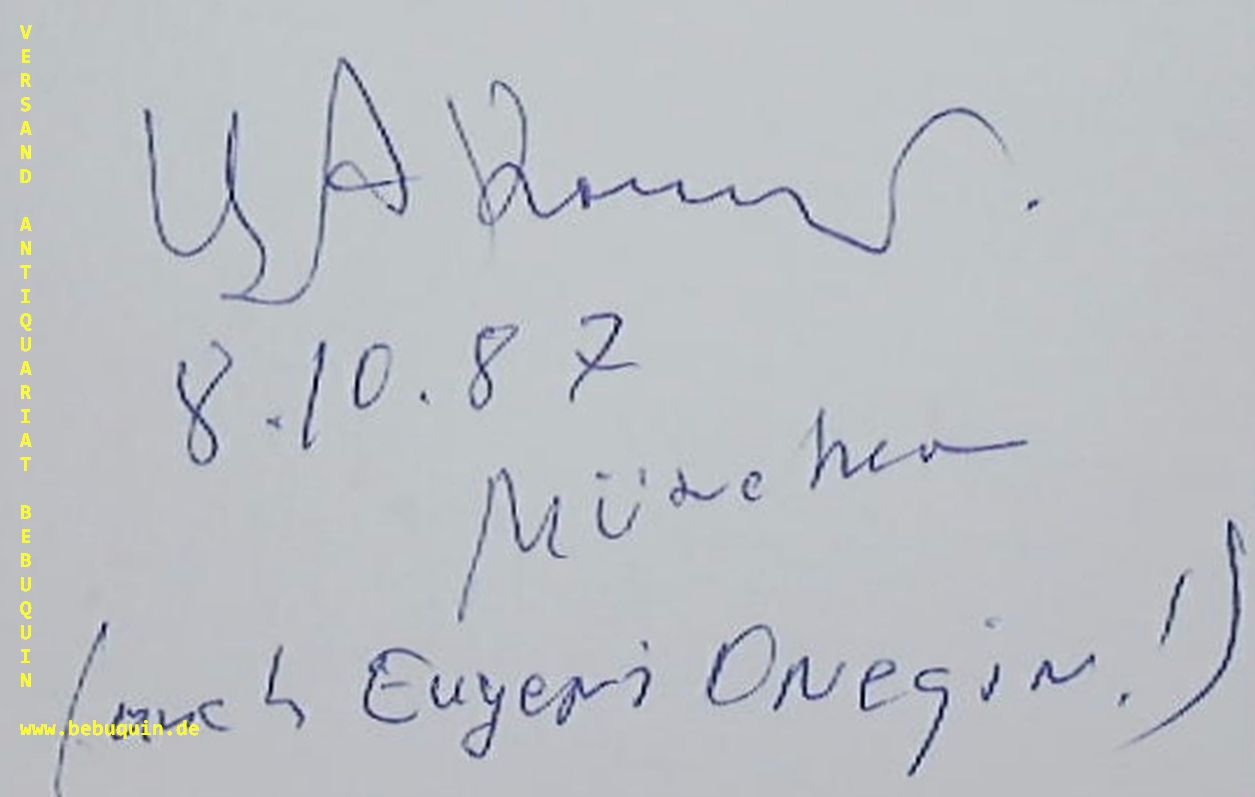 VERSAND ANTIQUARIAT BEBUQUIN
8.10.87
München
(nach Eugen Onegin!)
www.bebuquin.de